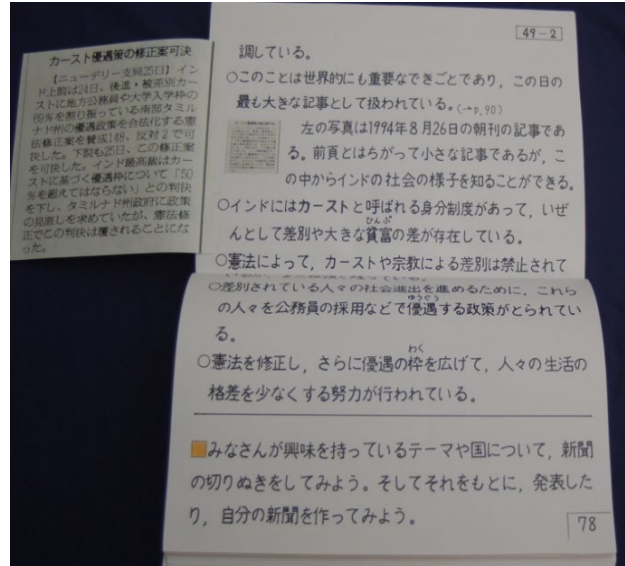 カースト優遇策の修正案可決
【ニューデリー支局25日】イン
ド上院は24日、後進・被差別カー
ストに地方公務員や大学入学枠の
69%を割り振っている南部タミル
ナド州の優遇政策を合法化する憲
法修正案を賛成148、反対2で可
決した。下院も25日、この修正案
を可決した。インド最高裁はカー
ストに基づく優遇枠について「50
%を超えてはならない」との判決
を下し、タミルナド州政府に政策
の見直しを求めていたが、憲法修
正でこの判決は覆されることにな
った。
49-2
調している。
○このことは世界的にも重要なできごとであり,この日の
最も大きな記事として扱われている。(→p,90)
左の写真は1994年8月26日の朝刊の記事であ
る。前頁とはちがって小さな記事であるが,こ
の中からインドの社会の様子を知ることができる。
○インドにはカーストと呼ばれる身分制度があって,いぜ
んとして差別や大きな貧富の差が存在している。
ひんぷ
○憲法によって,カーストや宗教による差別は禁止されて
○差別されている人々の社会進出を進めるために,これら
の人々を公務員の採用などで優遇する政策がとられてい
ゆうぐう
る。
○憲法を修正し,さらに優遇の枠を広げて,人々の生活の
わく
格差を少なくする努力が行われている。
みなさんが興味を持っているテーマや国について,新聞
の切りぬきをしてみよう。そしてそれをもとに,発表した
り,自分の新聞を作ってみよう。
78